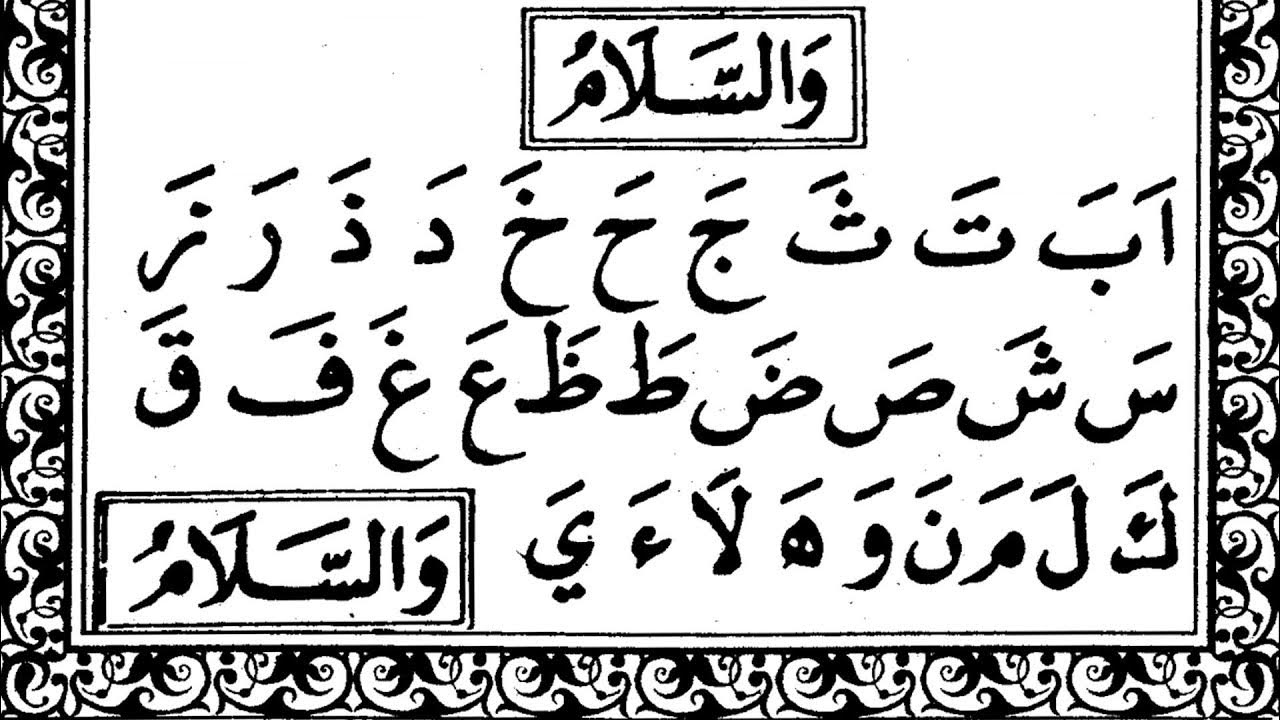 وَالسَّلَامُ
اَ بَ تَ ثَ جَ حَ خَ دَ ذَ رَ زَ
سَ شَ صَ ضَ طَ ظَ عَ غَ فَ قَ
كَ لَ مَ نَ وَ هَ لَا ءَ يَ
وَالسَّلَامُ